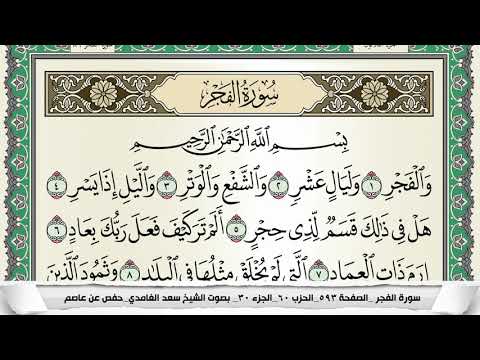 سُورَةُ الفَجْرِ
بِسْمِ اللَّهِ الرَّحْمَٰنِ الرَّحِيمِ
وَالْفَجْرِ ١ وَلَيَالٍ عَشْرٍ ٢ وَالشَّفْعِ وَالْوَتْرِ ٣ وَاللَّيْلِ إِذَا يَسْرِ ٤
هَلْ فِي ذَٰلِكَ قَسَمٌ لِّذِي حِجْرٍ ٥ أَلَمْ تَرَ كَيْفَ فَعَلَ رَبُّكَ بِعَادٍ ٦
إِرَمَ ذَاتِ الْعِمَادِ ٧ الَّتِي لَمْ يُخْلَقْ مِثْلُهَا فِي الْبِلَادِ ٨ وَثَمُودَ الَّذِينَ
سورة الفجر _الصفحة ٥٩٣_الحزب ٦٠_الجزء ٣٠_ بصوت الشيخ سعد الغامدي_ حفص عن عاصم